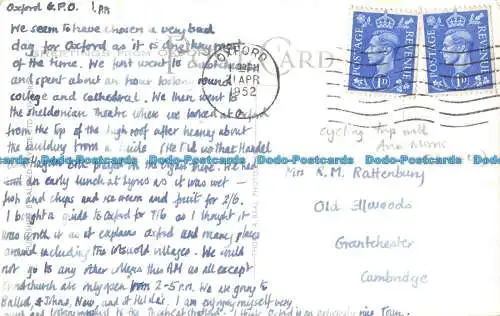 Oxford G.P.O. 1 PM
We seem to have chosen a very bad
day for Oxford as it is wet most
of the time. We just went to
and spent about an hour looking round
college and cathedral. We then went to
the Sheldonian Theatre where we looked at Oxford
from the top of the high roof after hearing about
the building from a guide. (He told us that Handel
& Haydn had played on the organ there. We had
an early lunch at Lyons as it was wet —
fish and chips and ice cream and fruit for 2/6.
I bought a guide to Oxford for 7/6 as I thought it
was worth it as it explains Oxford and many places
around including the Cotswold villages. We could
not go to any other colleges this AM as all except
Christchurch are only open from 2-5 p.m. We are going to
Balliol, St Johns, New, and St Hilda's. I am enjoying myself very
much
I think Oxford is an extremely nice Town.
GREETINGS FROM
CARD
OXFORD
21 APR
1952
POSTAGE
REVENUE
1D
POSTAGE
REVENUE
1D
cycling trip with
Ann
Mrs R.M. Rattenbury
Old Ellwoods
Grantchester
Cambridge
Dodo-Postcards.com Dodo-Postcards.com Dodo-Postcards.com Dodo-Postcards.com